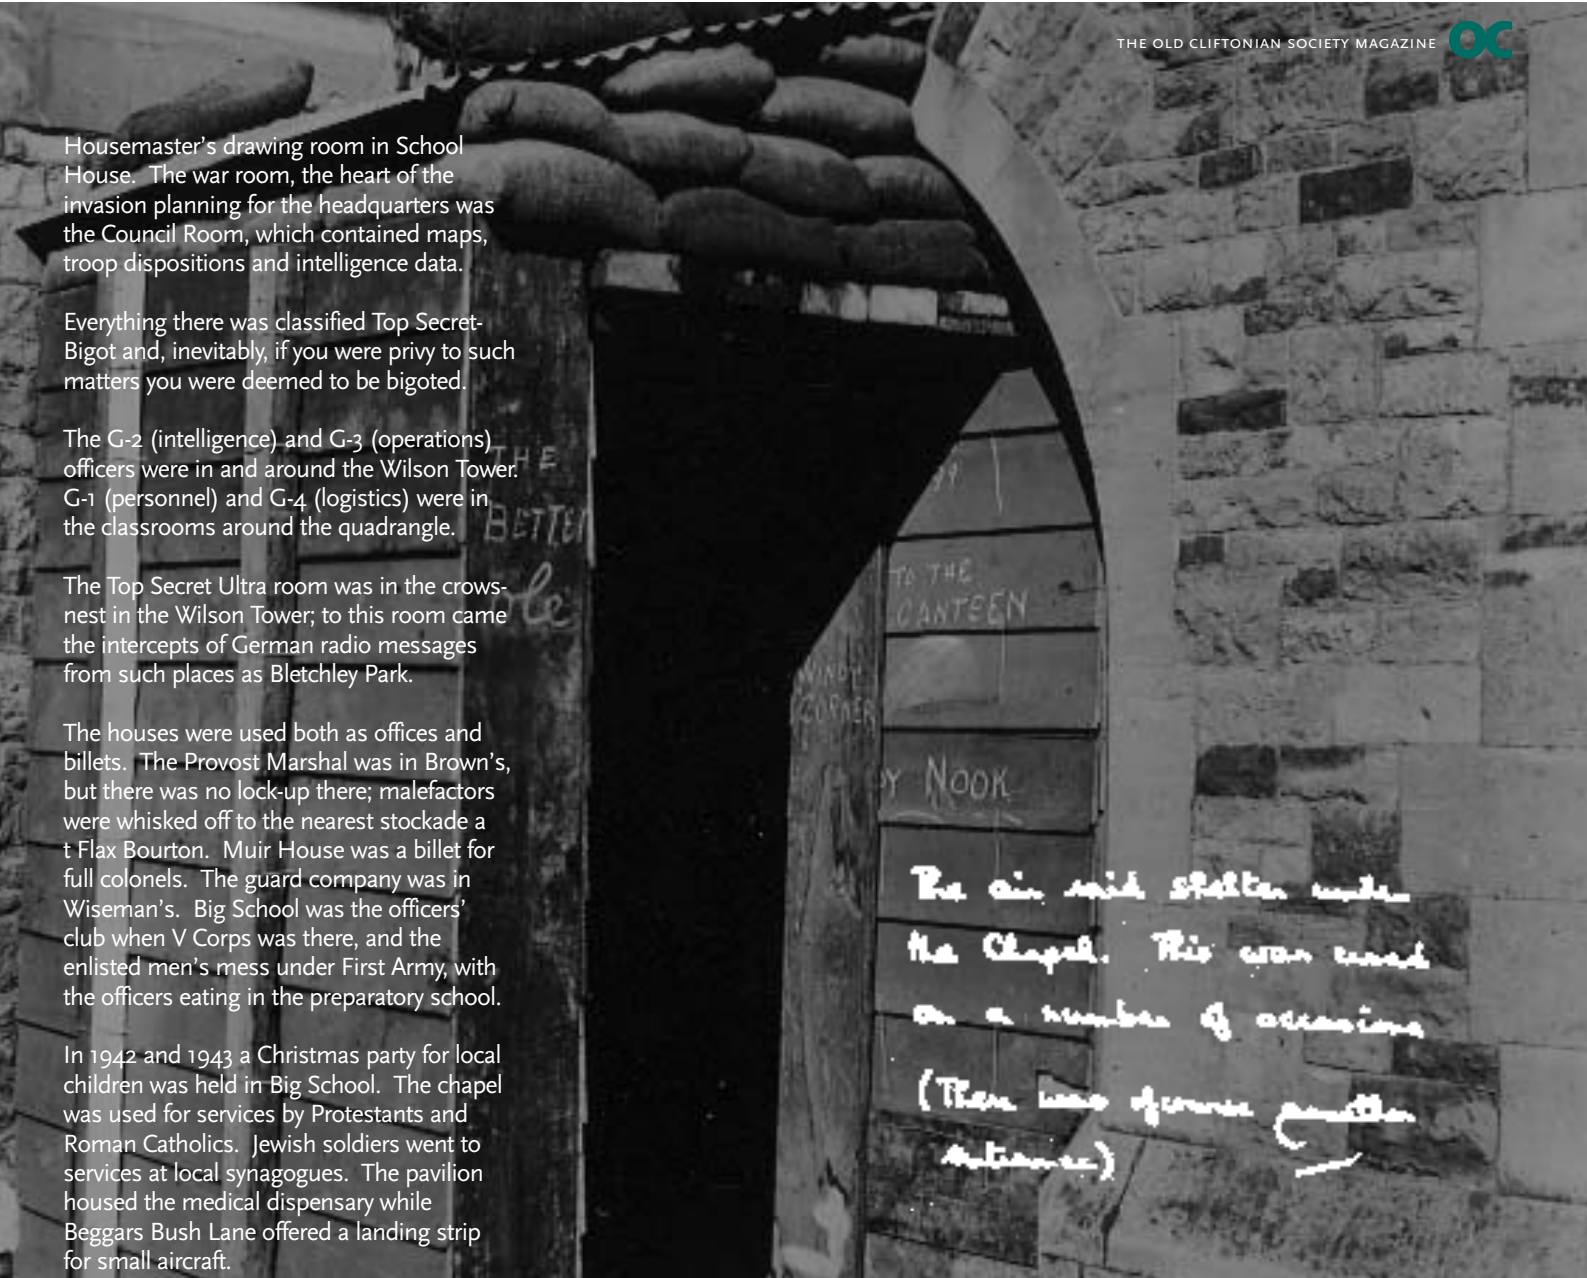 THE OLD CLIFTONIAN SOCIETY MAGAZINE OC
Housemaster's drawing room in School
House. The war room, the heart of the
invasion planning for the headquarters was
the Council Room, which contained maps,
troop dispositions and intelligence data.
Everything there was classified Top Secret-
Bigot and, inevitably, if you were privy to such
matters you were deemed to be bigoted.
The G-2 (intelligence) and G-3 (operations)
officers were in and around the Wilson Tower.
G-1 (personnel) and G-4 (logistics) were in
the classrooms around the quadrangle.
The Top Secret Ultra room was in the crows-
nest in the Wilson Tower; to this room came
the intercepts of German radio messages
from such places as Bletchley Park.
The houses were used both as offices and
billets. The Provost Marshal was in Brown's,
but there was no lock-up there; malefactors
were whisked off to the nearest stockade a
t Flax Bourton. Muir House was a billet for
full colonels. The guard company was in
Wiseman's. Big School was the officers'
club when V Corps was there, and the
enlisted men's mess under First Army, with
the officers eating in the preparatory school.
In 1942 and 1943 a Christmas party for local
children was held in Big School. The chapel
was used for services by Protestants and
Roman Catholics. Jewish soldiers went to
services at local synagogues. The pavilion
housed the medical dispensary while
Beggars Bush Lane offered a landing strip
for small aircraft.
THE
BETTER
TO THE
CANTEEN
WINDY
CORNER
NOOK
The air raid shelter under
the Chapel. This was used
on a number of occasions
(There was of course another
entrance)